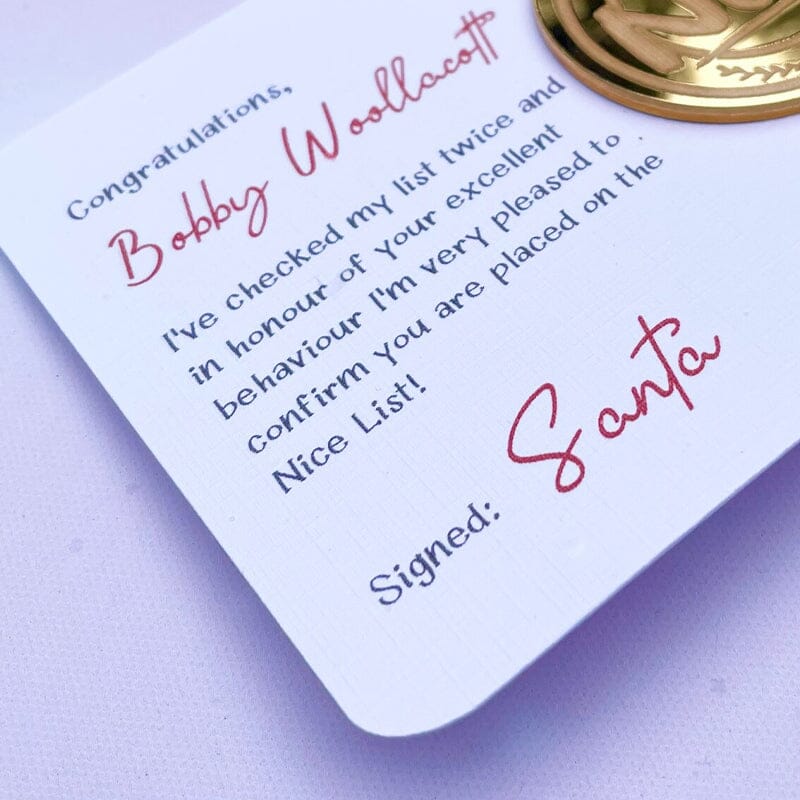 Congratulations,
Bobby Woollacott
I've checked my list twice and
in honour of your excellent
behaviour I'm very pleased to
confirm you are placed on the
Nice List!
Signed: Santa